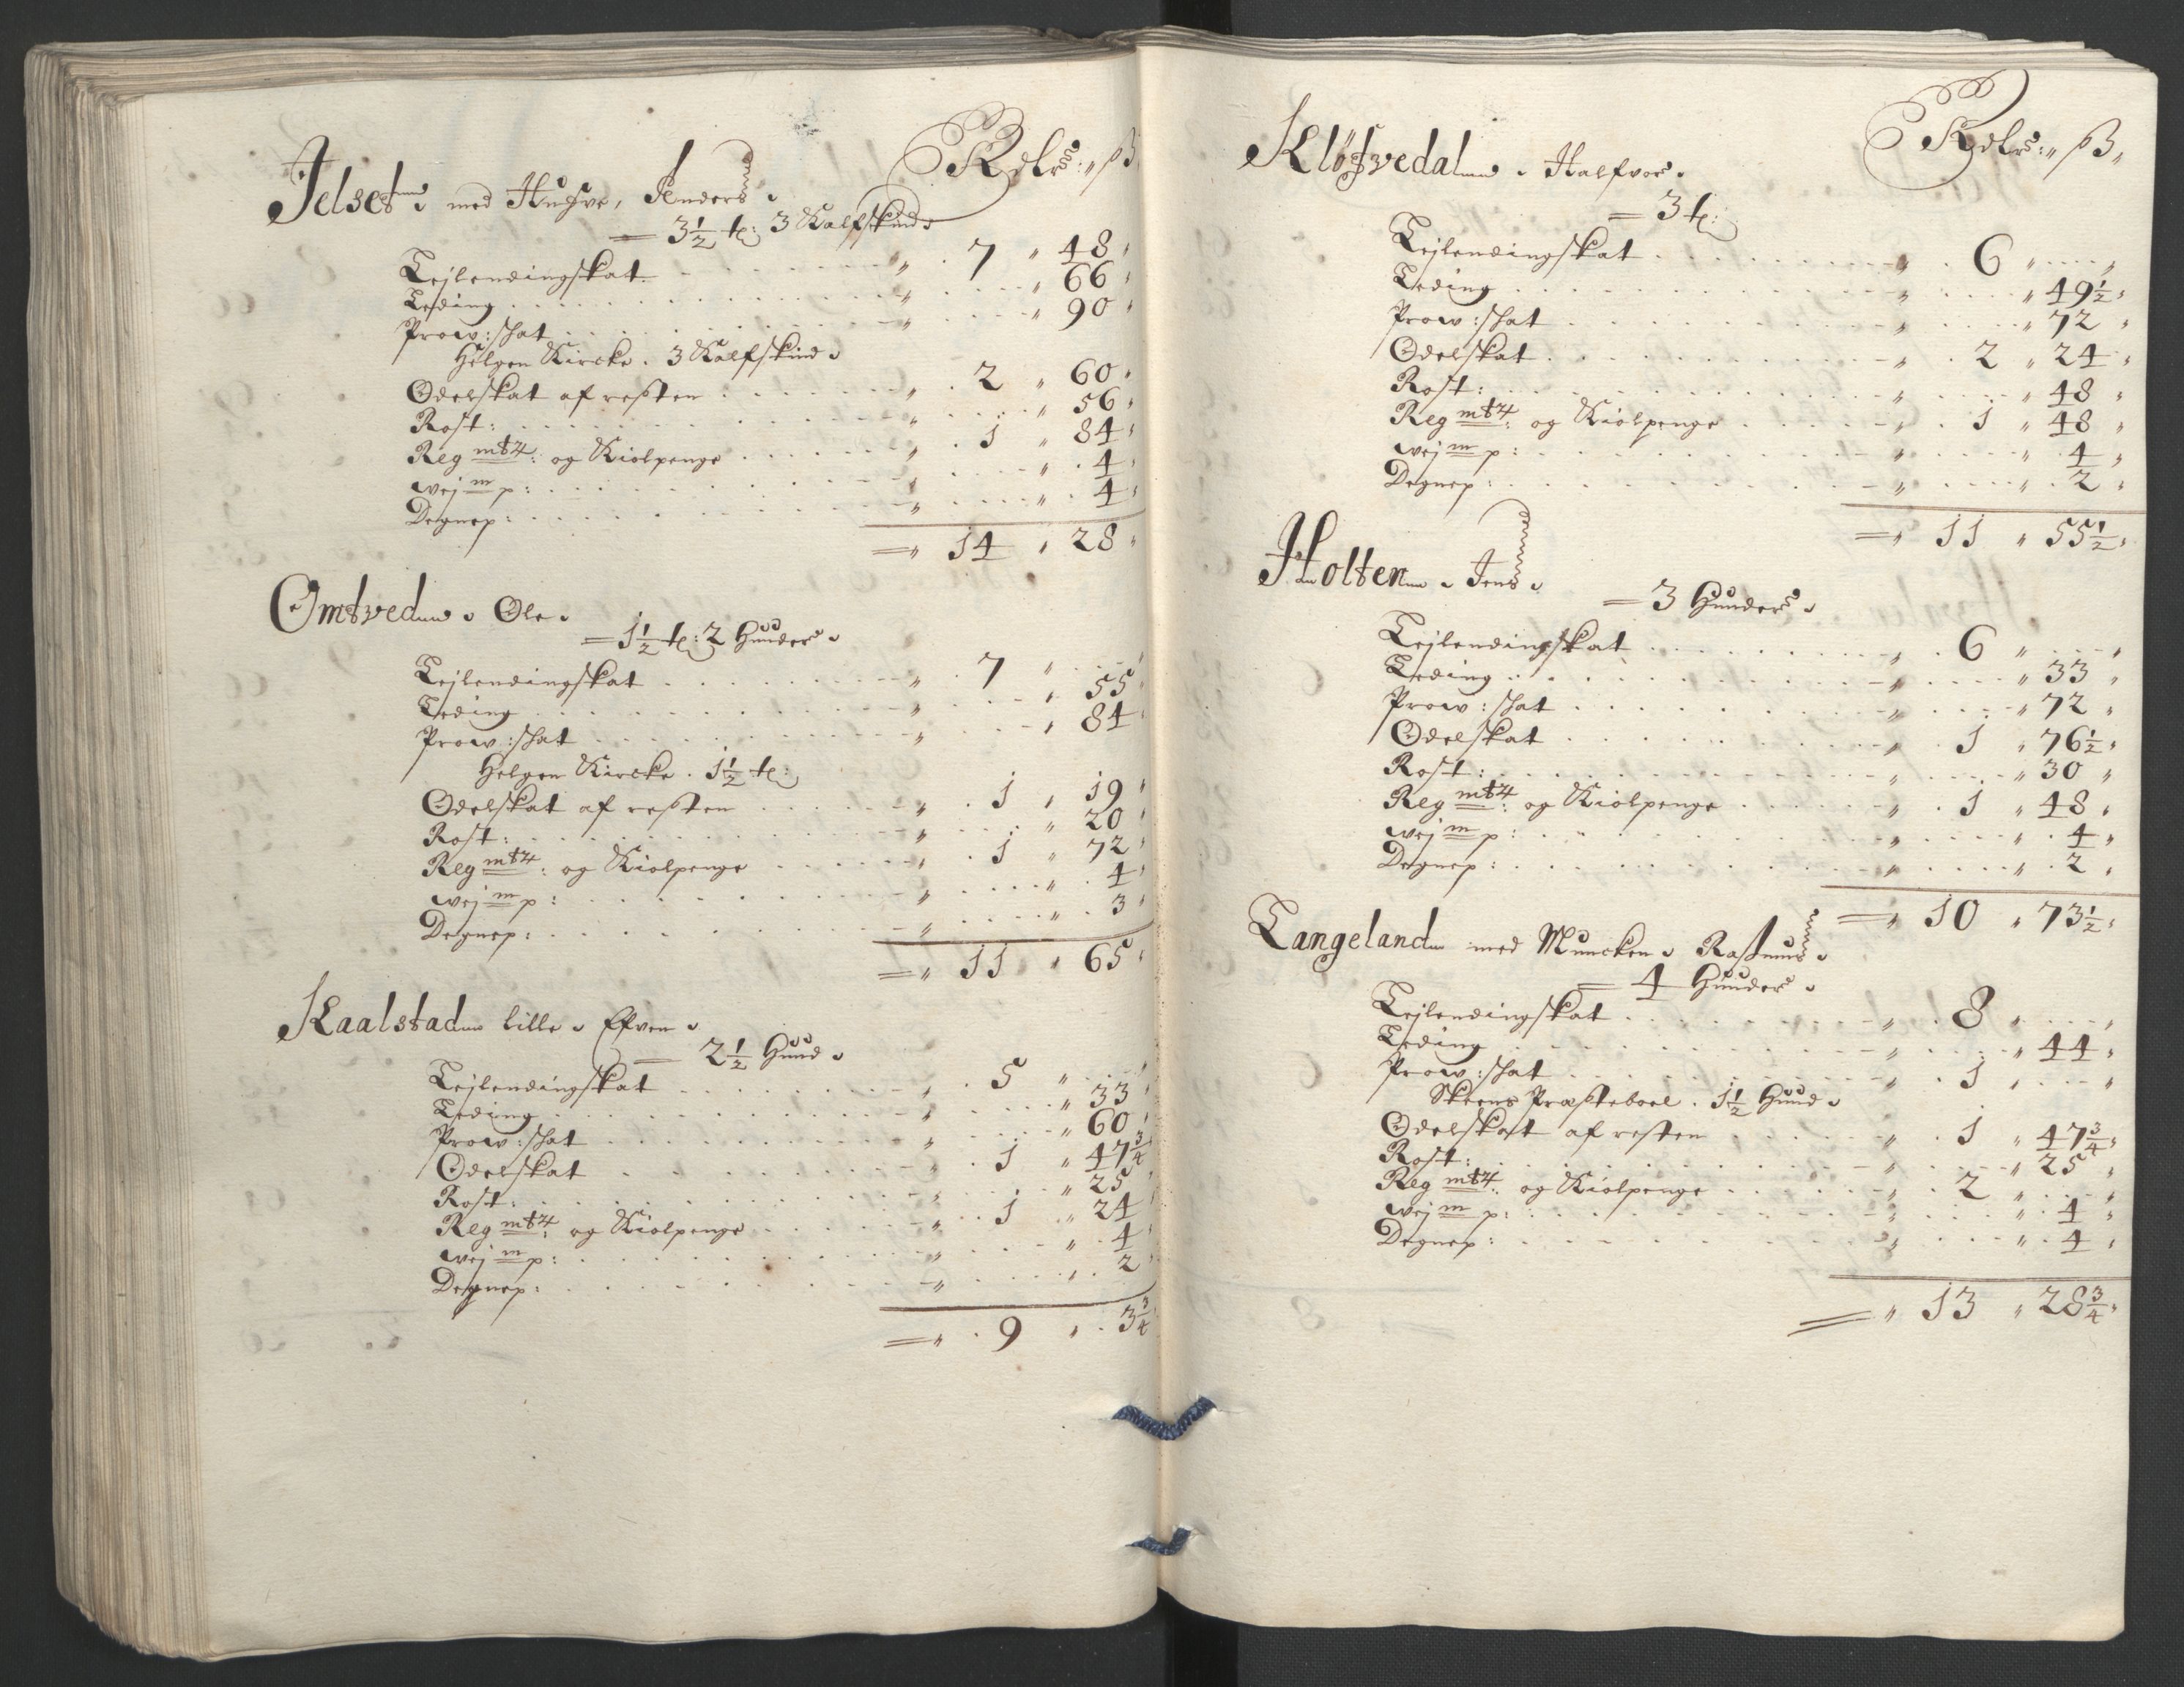 Rdlr: ß
Jelset med Husve, Anders
= 3½ t: 3 Kalfskind
Lejlendingskat 7 48
Leding 66
Prow: schat 90
Helgen Kircke. 3 Kalfskind
Odelskat af resten 2 60
Rost: 56
Reg mt4: og Kiolpenge 1 84
wej m p: 4
Degnep: 4
= 14 28
Omtved Ole
= 1½ t: 2 Huuder
Lejlendingskat 7
Leding 55
Prow: schat 84
Helgen Kircke. 1½ t:
Odelskat af resten 1 19
Rost: 20
Reg mt4: og Kiolpenge 1 72
wej m p: 4
Degnep: 3
= 11 65
Kaalstad lille Efven
= 2½ Huud
Lejlendingskat 5
Leding 33
Prow: schat 60
Odelskat 1 47¾
Rost: 25
Reg mt4: og Kiolpenge 1 24
wej m p: 4
Degnep: 2
= 9 3¾
Rdlr: ß
Klöfvedal Halfvor
= 3 t:
Lejlendingskat 6
Leding 49½
Prow: schat 72
Odelskat 2 24
Rost: 48
Reg mt4: og Kiölpenge 1 48
wej m p: 4
Degnep: 2
= 11 55½
Holten Jens
= 3 Huuder
Lejlendingskat 6
Leding 33
Prow: schat 72
Odelskat 1 76½
Rost: 30
Reg mt4: og Kiölpenge 1 48
wej m p: 4
Degnep: 2
= 10 73½
Langeland med Muncken Rasmus
= 4 Huuder
Lejlendingskat 8
Leding 44
Prow: schat 1
Skeens Præsteboel. 1½ Huud
Odelskat af resten 1 47¾
Rost: 25
Reg mt4: og Kiölpenge 2
wej m p: 4
Degnep: 4
= 13 28¾